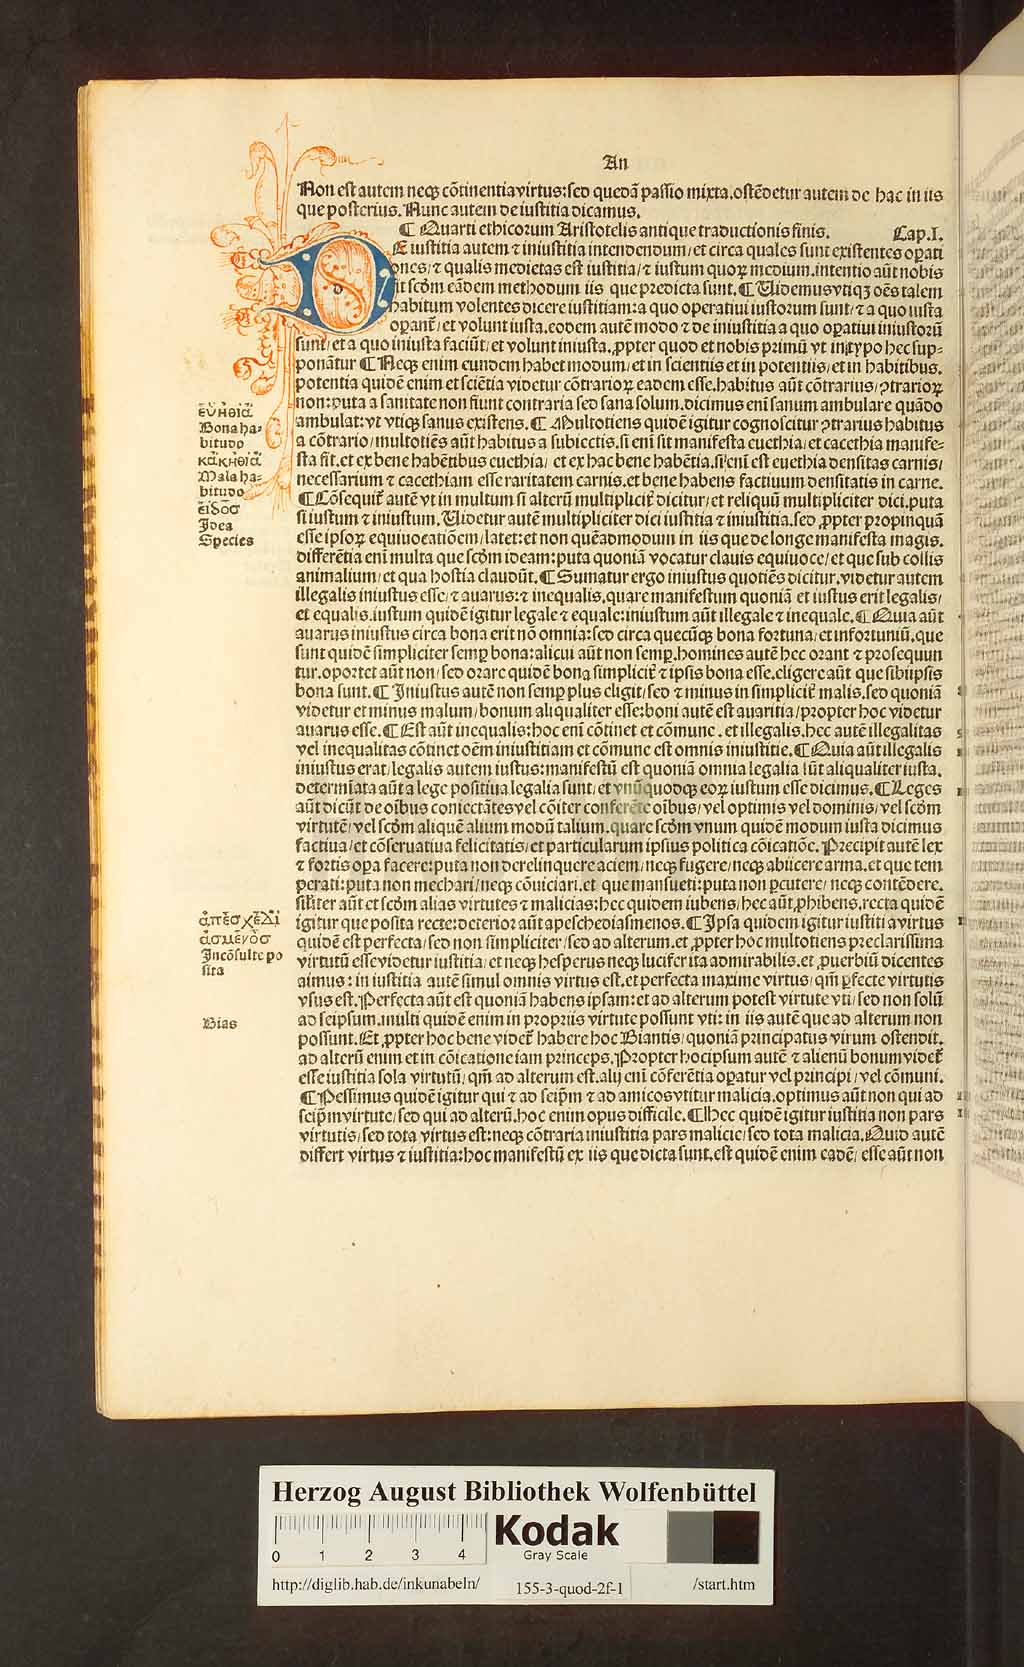 An
Non est autem neqȝ cōtinentia virtus: sed quedā passio mixta. ostēdetur autem de hac in iis
que posterius. Nunc autem de iustitia dicamus.
¶ Quarti ethicorum Aristotelis antique traductionis finis. Cap.I.
DE iustitia autem ⁊ iniustitia intendendum/ et circa quales sunt existentes oꝑati
ones/ ⁊ qualis medietas est iustitia/ ⁊ iustum quoꝝ medium. intentio aūt nobis
sit scd̄m eādem methodum iis que predicta sunt. ¶ Uidemus vtiqȝ oēs talem
habitum volentes dicere iustitiam: a quo operatiui iustorum sunt/ ⁊ a quo iusta
oꝑant̄/ et volunt iusta. eodem autē modo ⁊ de iniustitia a quo oꝑatiui iniustorū
sunt/ et a quo iniusta faciūt/ et volunt iniusta. ꝓpter quod et nobis primū vt in typo hec sup-
ponātur ¶ Neqȝ enim eundem habet modum/ et in scientiis et in potentiis/ et in habitibus.
potentia quidē enim et sciētia videtur cōtrarioꝝ eadem esse. habitus aūt cōtrarius/ ꝯtrarioꝝ
non: puta a sanitate non fiunt contraria sed sana solum. dicimus enī sanum ambulare quādo
ambulat: vt vtiqȝ sanus existens. ¶ Multotiens quidē igitur cognoscitur ꝯtrarius habitus
a cōtrario/ multotiēs aūt habitus a subiectis. si enī sit manifesta euethia/ et cacethia manife-
sta fit. et ex bene habētibus euethia/ et ex hac bene habētia. si enī est euethia densitas carnis/
necessarium ⁊ cacethiam esse raritatem carnis. et bene habens factiuum densitatis in carne.
¶ Cōsequit̄ autē vt in multum si alterū multiplicit̄ dicitur/ et reliquū multipliciter dici. puta
si iustum ⁊ iniustum. Uidetur autē multipliciter dici iustitia ⁊ iniustitia. sed ꝓpter propinquā
esse ipsoꝝ equiuocatiōem/ latet: et non quēadmodum in iis que de longe manifesta magis.
differētia enī multa que scd̄m ideam: puta quoniā vocatur clauis equiuoce/ et que sub collis
animalium/ et qua hostia claudūt. ¶ Sumatur ergo iniustus quotiēs dicitur. videtur autem
illegalis iniustus esse/ ⁊ auarus: ⁊ inequalis. quare manifestum quoniā et iustus erit legalis/
et equalis. iustum quidē igitur legale ⁊ equale: iniustum aūt illegale ⁊ inequale. ¶ Quia aūt
auarus iniustus circa bona erit nō omnia: sed circa quecūqȝ bona fortuna/ et infortuniū. que
sunt quidē simpliciter semꝑ bona: alicui aūt non semꝑ. homines autē hec orant ⁊ prosequun
tur. oportet aūt non/ sed orare quidē bona simplicit̄ ⁊ ipsis bona esse. eligere aūt que sibiipsis
bona sunt. ¶ Iniustus autē non semꝑ plus eligit/ sed ⁊ minus in simplicit̄ malis. sed quoniā
videtur et minus malum/ bonum aliqualiter esse: boni autē est auaritia/ propter hoc videtur
auarus esse. ¶ Est aūt inequalis: hoc enī cōtinet et cōmune. et illegalis. hec autē illegalitas
vel inequalitas cōtinet oēm iniustitiam et cōmune est omnis iniustitie. ¶ Quia aūt illegalis
iniustus erat/ legalis autem iustus: manifestū est quoniā omnia legalia sūt aliqualiter iusta.
determīata aūt a lege positiua legalia sunt/ et vnūquodqȝ eoꝝ iustum esse dicimus. ¶ Leges
aūt dicūt de oībus coniectātes vel cōiter conferēte oībus/ vel optimis vel dominis/ vel scd̄m
virtutē/ vel scd̄m aliquē alium modū talium. quare scd̄m vnum quidē modum iusta dicimus
factiua/ et cōseruatiua felicitatis/ et particularum ipsius politica cōicatiōe. Precipit autē lex
⁊ fortis oꝑa facere: puta non derelinquere aciem/ neqȝ fugere/ neqȝ abiicere arma. et que tem
perati: puta non mechari/ neqȝ cōuiciari. et que mansueti: puta non ꝑcutere/ neqȝ contēdere.
silr̄iter aūt et scd̄m alias virtutes ⁊ malicias: hec quidem iubens/ hec aūt ꝓhibens. recta quidē
igitur que posita recte: deterior aūt apeschediasmenos. ¶ Ipsa quidem igitur iustitia virtus
quidē est perfecta/ sed non simpliciter/ sed ad alterum. et ꝓpter hoc multotiens preclarissima
virtutū esse videtur iustitia/ et neqȝ hesperus neqȝ lucifer ita admirabilis. et ꝓuerbiū dicentes
aimus: in iustitia autē simul omnis virtus est. et perfecta maxime virtus/ qm̄ ꝑfecte virtutis
vsus est. Perfecta aūt est quoniā habens ipsam: et ad alterum potest virtute vti/ sed non solū
ad seipsum. multi quidē enim in propriis virtute possunt vti: in iis autē que ad alterum non
possunt. Et ꝓpter hoc bene videt̄ habere hoc Biantis/ quoniā principatus virum ostendit.
ad alterū enim et in cōicatione iam princeps. Propter hocipsum autē ⁊ alienū bonum videt̄
esse iustitia sola virtutū/ qm̄ ad alterum est. alij enī cōferētia oꝑatur vel principi/ vel cōmuni.
¶ Pessimus quidē igitur qui ⁊ ad seip̄m ⁊ ad amicos vtitur malicia. optimus aūt non qui ad
seip̄m virtute/ sed qui ad alterū. hoc enim opus difficile. ¶ Hec quidē igitur iustitia non pars
virtutis/ sed tota virtus est: neqȝ cōtraria iniustitia pars malicie/ sed tota malicia. Quid autē
differt virtus ⁊ iustitia: hoc manifestū ex iis que dicta sunt. est quidē enim eadē/ esse aūt non
ἐυηθια
Bona ha-
bitudo
κακηθια
Mala ha-
bitudo
ειδοσ
Idea
Species
ἀπεσχεδι
ασμενοσ
Incōsulte po
sita
Bias
Herzog August Bibliothek Wolfenbüttel
0 1 2 3 4
Kodak
Gray Scale
http://diglib.hab.de/inkunabeln/ 155-3-quod-2f-1 /start.htm